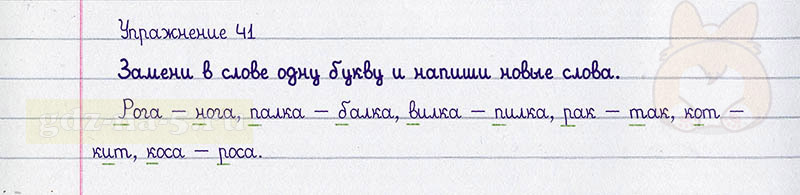 Упражнение 41
Замени в слове одну букву и напиши новые слова.
Рога – нога, палка – балка, вилка – пилка, рак – так, кот –
кит, коса – роса.